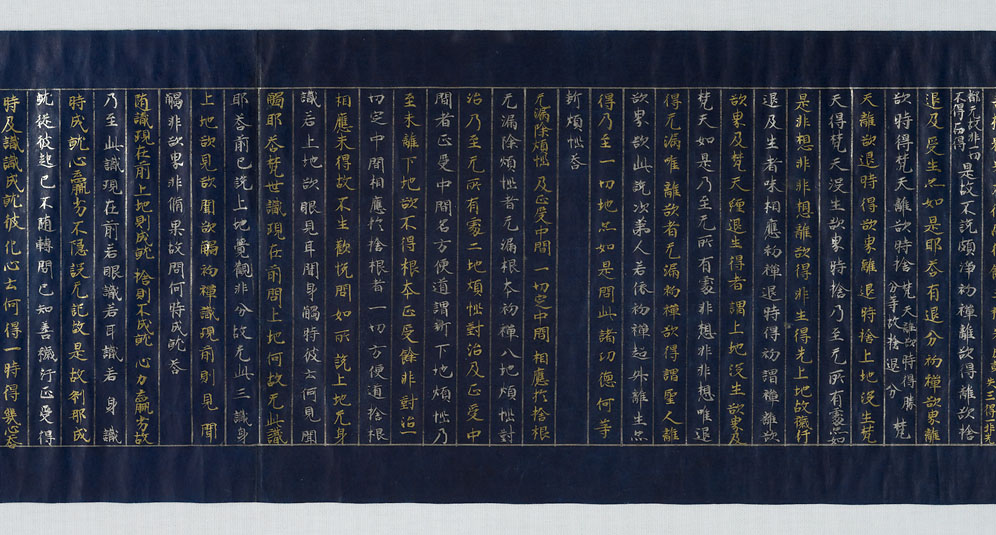 都无故非一向
不得而得 是故不説頗淨初禪離欲得離欲捨
退及受生亦如是耶答有退分初禪欲界離
欲時得梵天離欲時捨 梵天離欲時得勝分等故捨退分 梵
天離欲退時得欲界離退時捨上地没生梵
天得梵天没生欲界時捨乃至无所有處亦如
是非想非非想離欲得非非生得先上地故穢汙
退及生者味相應初禪退時得初謂禪離欲
欲界及梵天纏退生得者謂上地没生欲界及
梵天如是乃至无所有處非想非非想唯退
得无漏唯離欲者无漏初禪欲得謂聖人離
欲界欲此説次第人若依初禪超昇離生亦
得乃至一切地亦如是問此諸功德何等
斷煩惱答
无漏除煩惱 及正受中間 一切定中間 相應於捨根
无漏除煩惱者无漏根本初禪八地煩惱對
治乃至无所有處二地煩惱對治及正受中
間者正受中間名方便道謂斷下地煩惱乃
至未離下地欲不得根本正受餘非對治一
切定中間相應於捨根者一切方便道捨根
相應未得故不生歡悦問如所説上地无身
識若上地欲眼見耳聞身觸時彼云何見聞
觸耶答梵世識現在前問上地何故无此識
耶答前已説上地覺觀非分故无此 三識身
上地欲見欲聞欲觸初禪識現前則見 聞
觸非欲界非非脩果故問何時成就答
随識現在前上地則成就 捨則不成就 心力羸劣故
乃至此識現在前若眼識若耳識若 身 識
時成就心羸劣不隱設无記故是故刹那成
就從彼起已不随轉問已知善穢汙正受得
時及識識成就彼化心云何得一時得幾心答